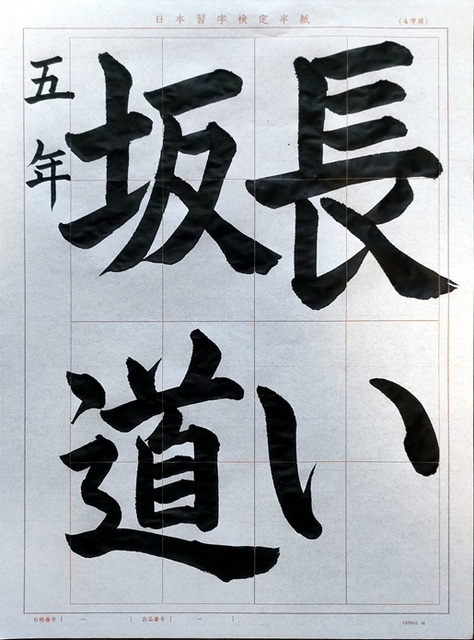 日本習字検定半紙
(4字用)
長い
坂道
五年
合格番号(　ー　)　出品番号(　ー　)